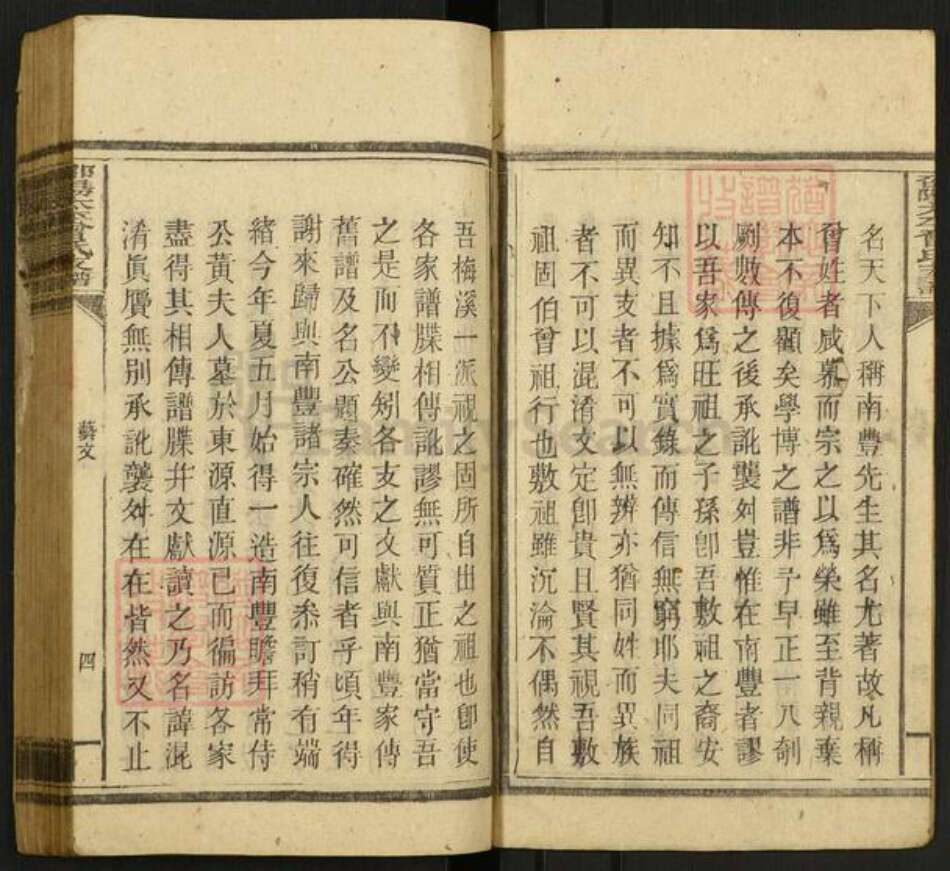 名天下人稱南豐先生其名尤著故凡稱
曾姓者咸慕而宗之以爲榮雖至背親棄
本不復顧矣學博之譜非予早正一人剞
劂數傳之後承訛襲舛豈惟在南豐者謬
以吾家爲旺祖之子孫卽吾敷祖之裔安
知不且據爲實錄而傳信無窮耶夫同祖
而異支者不可以無辨亦猶同姓而異族
者不可以混淆文定卽貴且賢其視吾敷
祖固伯曾祖行也敷祖雖沉淪不偶然自
吾梅溪一派視之固所自出之祖也卽使
各家譜牒相傳訛謬無可質正猶當守吾
之是而不變矧各支之文獻與南豐家傳
舊譜及名公題奏確然可信者乎頃年得
謝來歸與南豐諸宗人往復叅訂稍有端
緒今年夏五月始得一造南豐瞻拜常侍
公黃夫人墓於東源直源已而徧訪各家
盡得其相傳譜牒幷文獻讀之乃名諱混
淆眞贗無別承訛襲舛在在皆然又不止
藝文
四